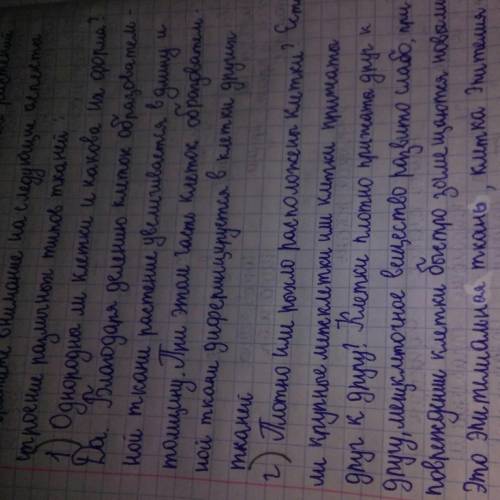 внимание на следующие аспекты
строение различных типов тканей:
1) Однородна ли клетки и какова их форма?
Да. Благодаря делению клеток образователь-
ной ткани растение увеличивается в длину и
толщину. При этом часть клеток образователь-
ной ткани дифференцируется в клетки других
тканей
2) Плотно или рыхло расположены клетки? Есть
ли крупные межклетки или клетки прижаты
друг к другу? Клетки плотно прижаты друг к
другу, межклеточное вещество развито слабо, при
повреждении клетки быстро замещаются новыми
Это эпителиальная ткань, клетка эпителия